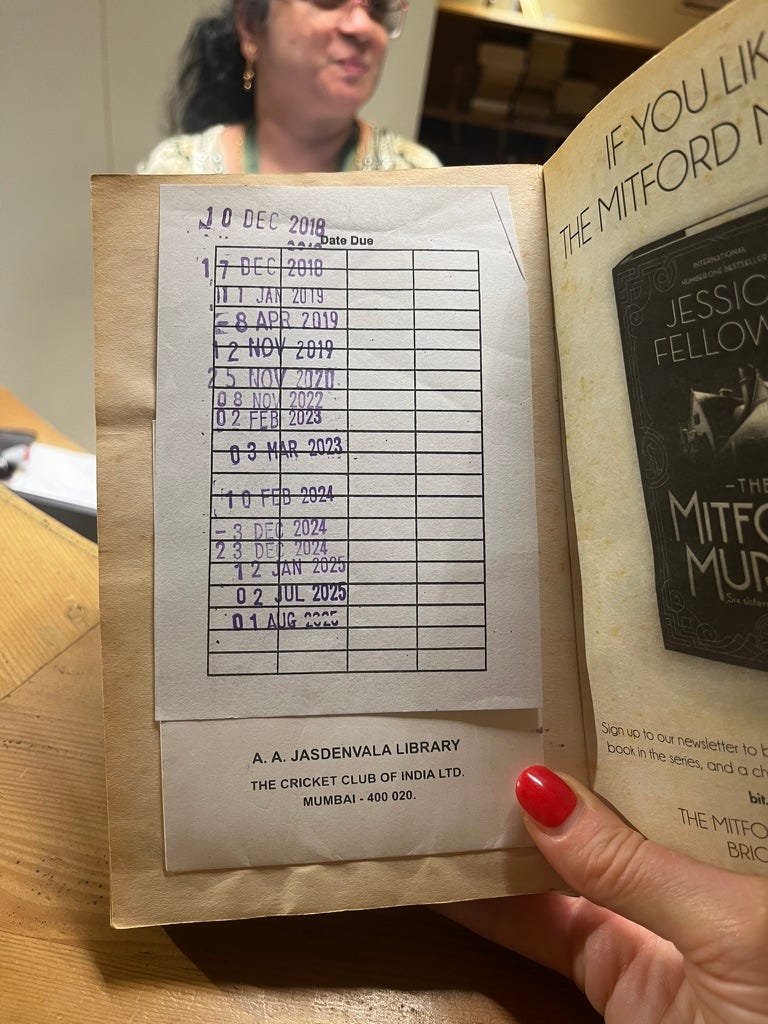 10 DEC 2018
Date Due
17 DEC 2018
11 JAN 2019
-8 APR 2019
12 NOV 2019
25 NOV 2020
08 NOV 2022
02 FEB 2023
03 MAR 2023
10 FEB 2024
-3 DEC 2024
23 DEC 2024
12 JAN 2025
02 JUL 2025
01 AUG 2025
A. A. JASDENVALA LIBRARY
THE CRICKET CLUB OF INDIA LTD.
MUMBAI - 400 020.
IF YOU
THE MITFORD
INTERNATIONAL
NUMBER ONE BESTSELLER
-THE
Sign up to our newsletter to
book in the series, and a
bit.
THE